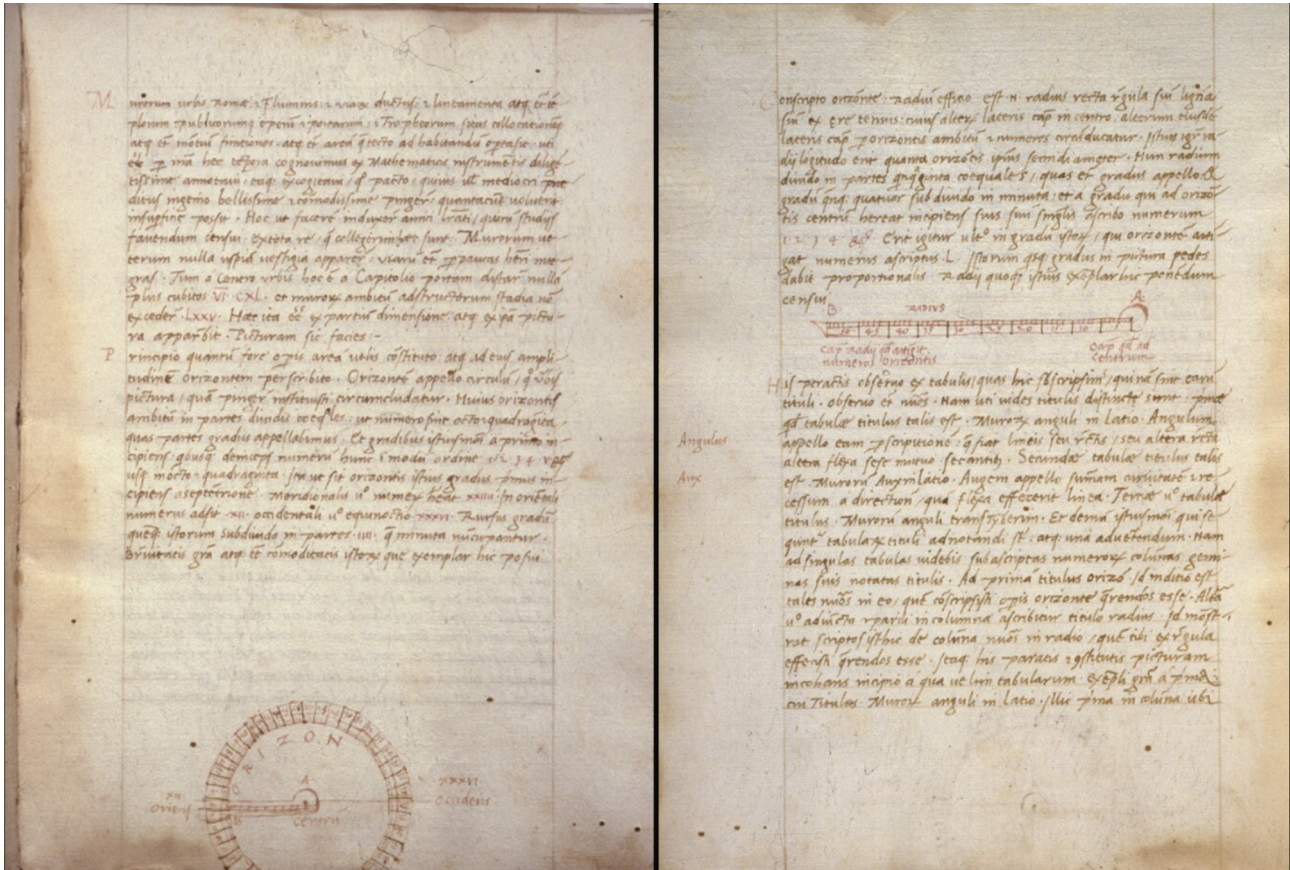 Murorum urbis Romæ & fluminis & viarum ductus & lineamenta atq; et te
plorum publicorumq; operum & portarum & Trophæorum situs collocationeq;
atq; et montium finitiones atq; et area q̃ tecto ad habitandũ operta sit uti
eẽ p nrã hec tẽpora cognovimus ex Mathematicis instrumẽtis dilige
tissime annotavi eaq; excogitavi quo pacto quivis vel mediocri præ
ditus ingenio bellissime & comodissime pinger quantacũq; voluerit
in superficie possit. Hoc ut facere induxer amici lrati quorũ studijs
favendum censui. ex tota re q̃ collegerim hec sunt. Murorum ve
terum nulla uspiã vestigia apparer viarũ et p paucas hẽri inte
gras. Tum a Centro urbis hoc ẽ a Capitolio portam distare nulla
plus cubitos VI CXL. et murorũ ambitũ adstructorum stadia nõ
exceder LXXV. Hæc ita eẽ ex partiũ dimensione atq; ex ipa pictu
ra apparebit. Picturam sic facies.
Principio quantũ fore opis area velis cõstituito atq; ad eius ampli
tudinẽ orizontem perscribito. Orizontẽ appello circulũ quo ois
pictura quã pinger institueris circumcludatur. Huius orizontis
ambitũ in partes dividis coeq̃les ut numero sint octo & quadraginta
quas partes gradus appellabimus. Et gradibus istiusmoi a primo in
cipiens quousq; deinceps numerũ hunc i modũ ordine 1 2 3 4
usq; in octo & quadraginta. Ita ut sit orizontis istius gradus primus in
cipiens a septentrione Meridionalis vo numer heat XXIIII. In orientali
numerus adsit XII. occidentali vo equinoctio XXXVI. Rursus gradũ
quẽq; istorum subdivido in partes IIII. q̃ minuta nũcupantur.
Brevitatis grã atq; et cõmoditatis istorum que exemplar hic posui
ORIZON
XII
Oriens
A
B
Centrũ
XXXVI
Occidens
Conscripto orizonte Radiũ efficio. est n. radius recta rẽgula sive lignea
sive ex ere tenuis cuius alterum lateris cap in centro alterum eiusdẽ
lateris cap p orizontis ambitũ & numeros circũducatur. Istius igr ra
dij lõgitudo erit quanta orizõtis ipius semidiameter. Hun radium
divido in partes quiquaginta coequales quas et gradus appello. &
gradũ quẽq; quatuor subdivido in minuta et a gradu qui ad orizo
tis centrũ hereat incipiens suis suũ singlis ascribo numerum
1 2 3 4 Erit igitur ulto in gradu istorum qui orizontẽ atti
gat numerus ascriptus L. Istorum quisq; gradus in pictura pedes
dabit proportionalis Radij quoq; istius exẽplar hic ponẽdum
censui
B RADIVS A
Cap Radij qd atigit
numeros orizontis
Cap qd ad
centrum
His peractis observo ex tabulis quas hic subscripsim qui nã sint earũ
tituli. observo et nũos. Nam uti vides titulis distincte sunt. prime
qd tabulæ titulus talis est. Murorum anguli in latio. Angulum
Angulus
appello eam pscriptione q̃ fiat lineis seu rectis seu altera recta
altera flexa sese mutuo secantibus. Secundæ tabulæ titulus talis
est. Murorũ Auges in latio. Augem appello sumam curvitatẽ & re
Aux
cessum a directum quã flexa effecerit linea. Tertiæ vo tabulæ
titulus. Murorũ anguli transtyberim. Et deinde istiusmoi qui se
quunt tabularum tituli adnotandi st. atq; unã advertendum. Nam
ad singulas tabulas videbis subascriptas numerorum colũnas gemi
nas suis notatas titulis. Ad primã titulus orizõ. Id inditio est
tales nũos in eo quẽ cõscripsisti opis orizonte querendos esse. Alia
vo adiuncta & parili in columna ascribitur titulo radius. Id mõst
rat scriptos isthic de colũna nũos in radio quẽ tibi ex rẽgula
effecisti querendos esse. Itaq; his paratis & cõstitutis picturam
incohans incipio a qua velim tabularum. exẽpli grã a prima
cui Titulus. Murorum anguli in latio. Illic prima in colũna ubi